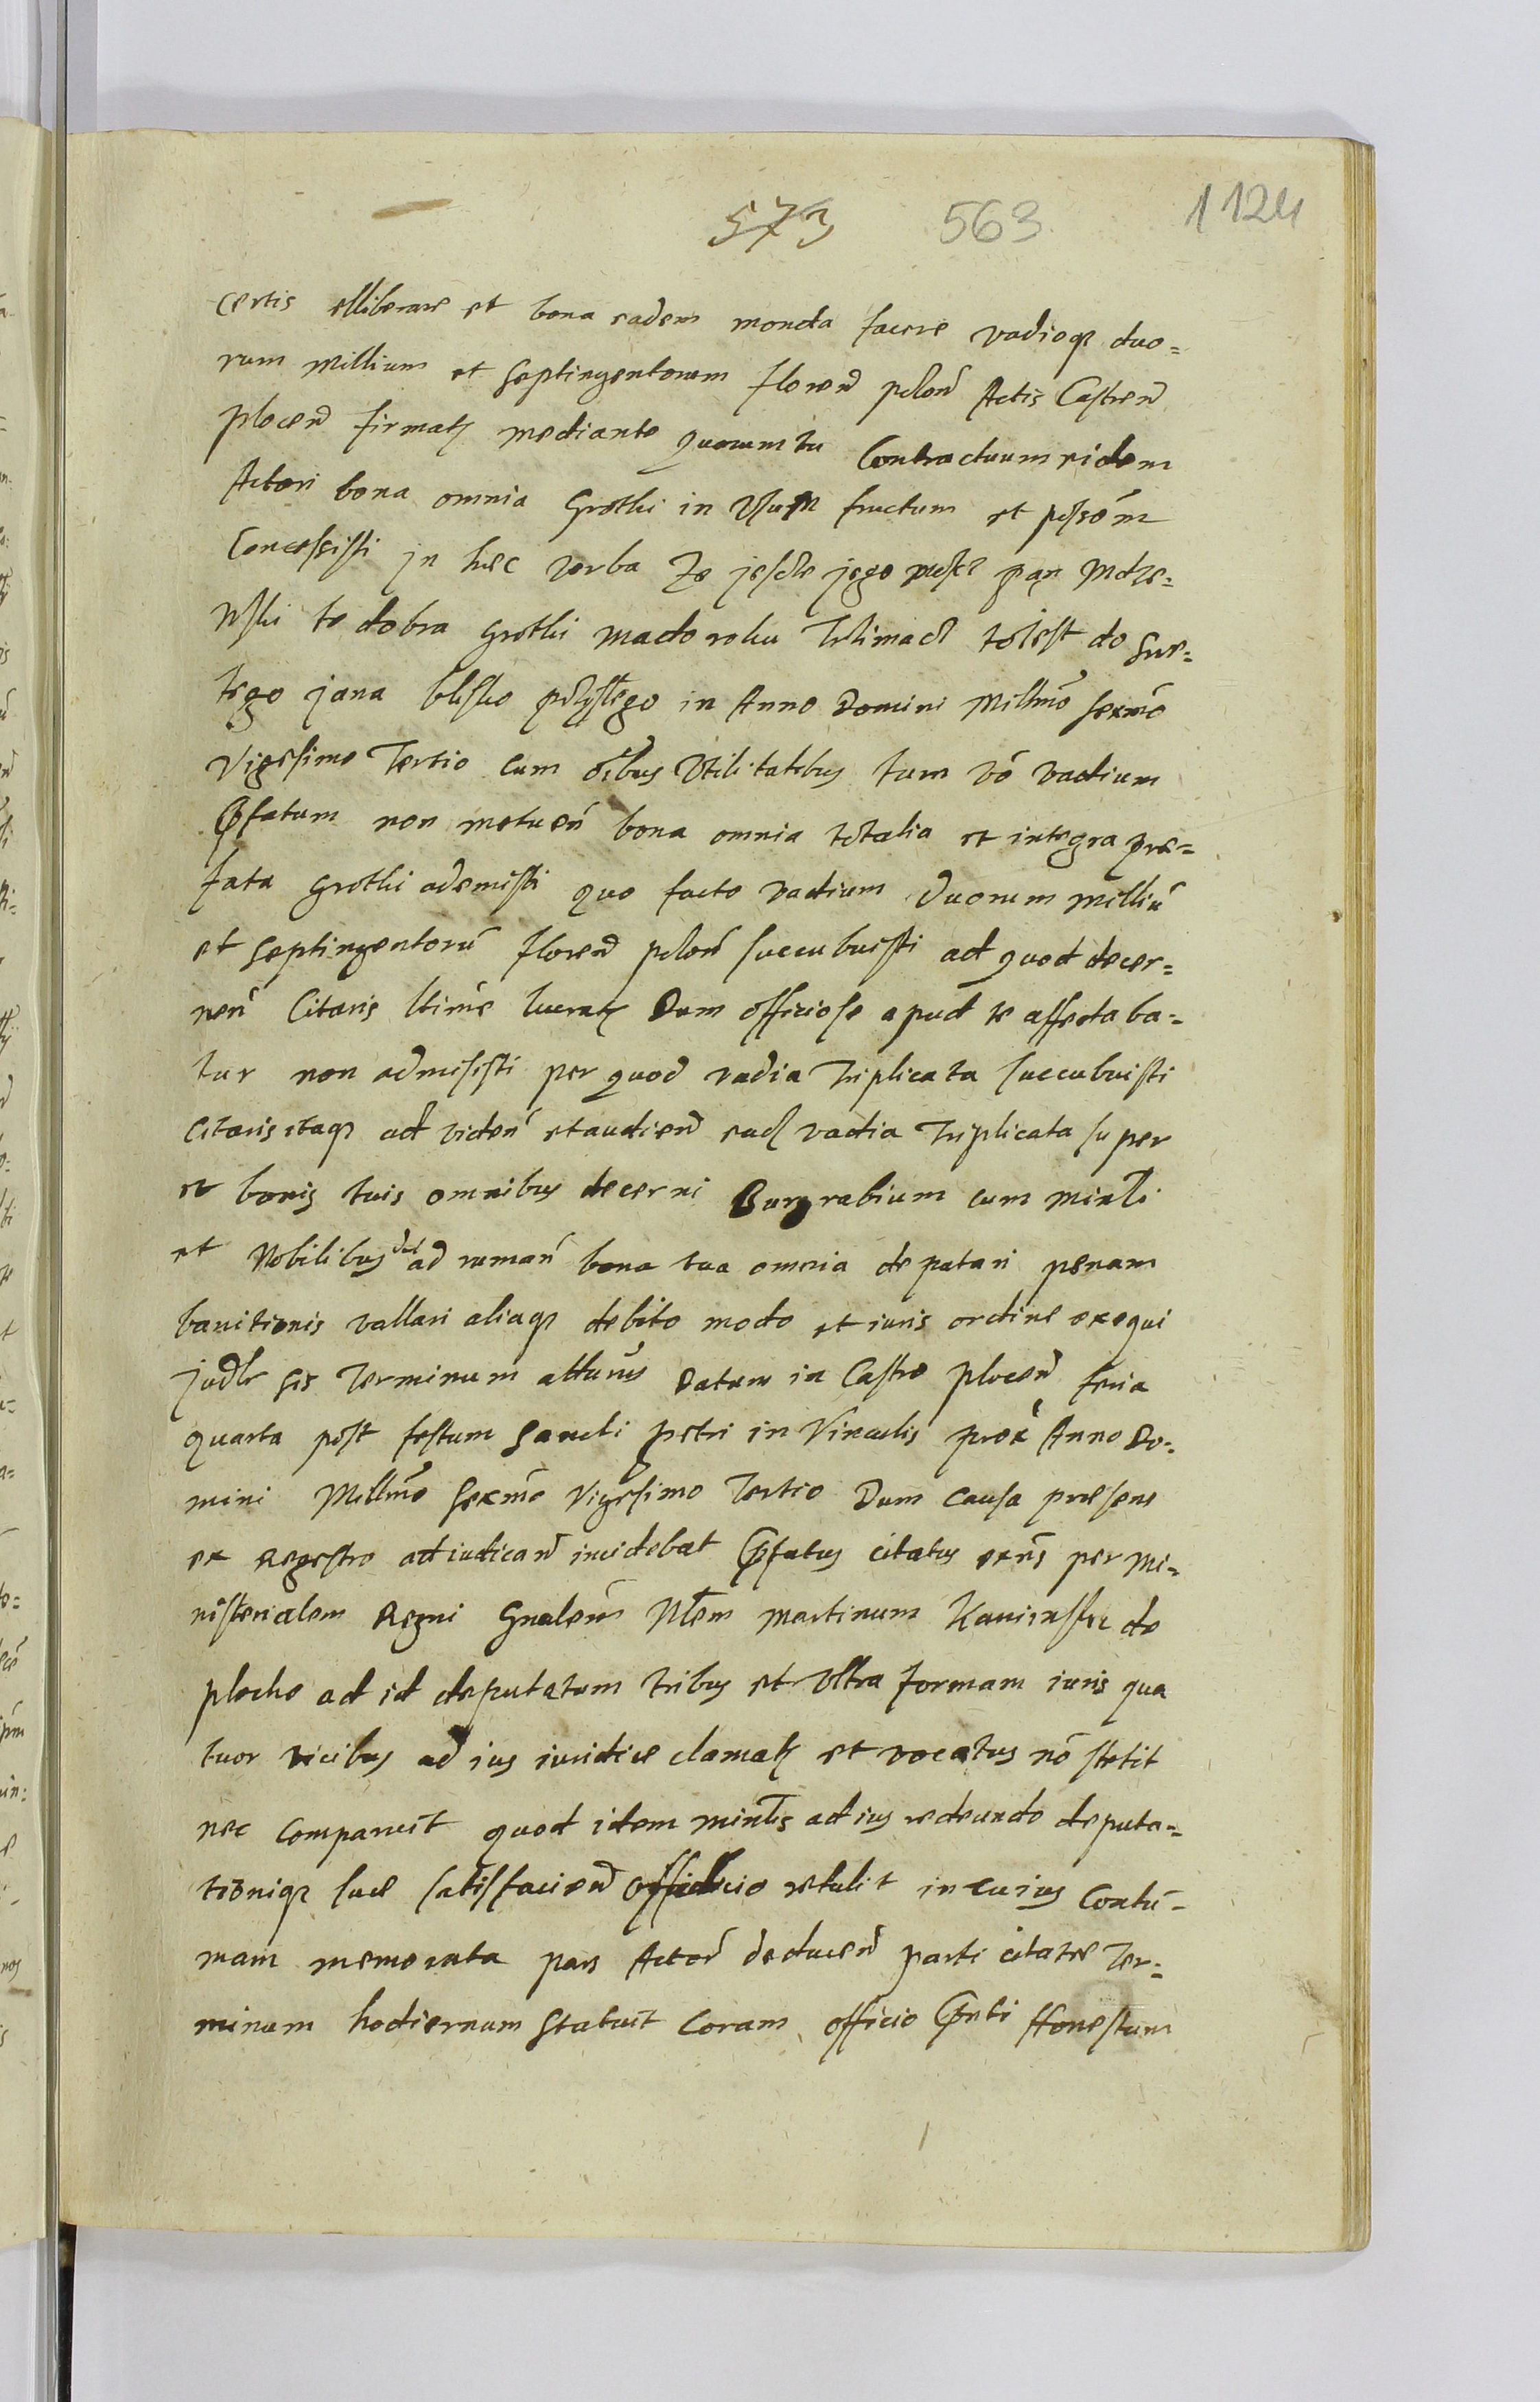 573 563 1124
certis elliberare et bona eadem monda facere vadioqz duo=
rum Millium et Septingentorum floren polon Actis Castren
plocen firmatz mediante quorum tu Contractuum eidem
Actori bona omnia Grotki in Usum fructum et possom
Concessisti jn hec verba Ze jesche jego pan Mdze=
wski te dobra Grotki ma do roku trzimacz to jest do Swe=
tego jana blisko przyszlego in Anno Domini Millmo Sexmo
Vigesimo Tertio cum oibus Utilitatibus tum vo vadium
Pfatum non metuen bona omnia totalia et integra pre=
fata Grotki ademisti quo facto vadium Duorum Milliu
et Septingentoru floren polon succubuisti ad quod decer=
nen Citaris ltime lucratz Dum officiose apud te affectaba=
tur non admisisti per quod vadia Triplicata succubuisti
Citaris itaqz ad viden et audien ead vadia Triplicata super
et bonis tuis omnibus decerni Burgrabium cum Minli
et Nobilibus ad ruman bona tua omnia deputari penam
banitionis vallari aliaqz debito modo et iuris ordine exequi
judlr sis Terminum atturus Datum in Castro plocen feria
quarta post festum Sancti Petri in Vinculis prox Anno Do=
mini Millmo Sexmo Vigesimo Tertio Dum causa presens
ex Regestro ad iudican incidebat Pfatus citatus exns per Mi=
nisterialem Regni Gnalem Ntem Martinum Kaniewski de
plocko ad id deputatum tribus et Ultra formam iuris qua
tuor vicibus ad ius iuridice clamatz et vocatus no stetit
nec comparuit quod idem minlis ad ius redeundo deputa=
tioniqz sue satisfacien officio retulit in cuius Contu=
mam memorata pars Actor deducen parti citatae Ter=
minum hodiernum Statuit coram officio Pnti Honestum